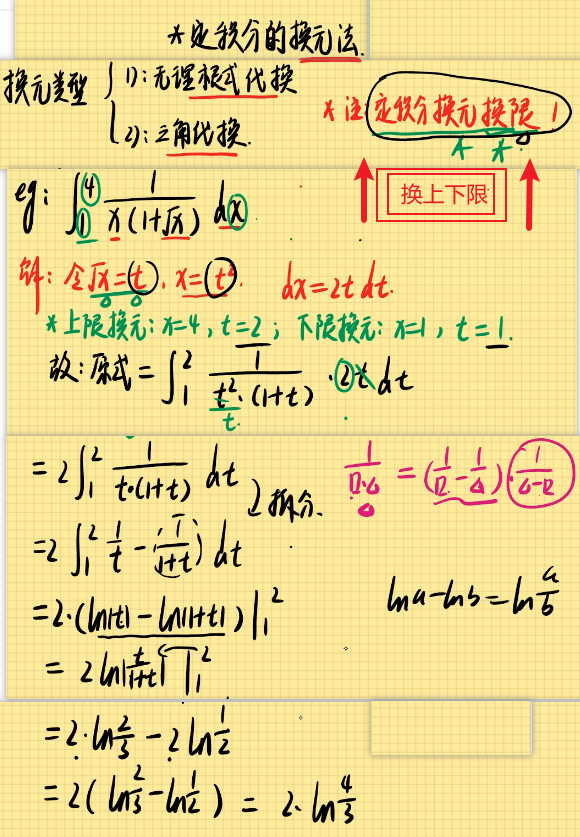 *定积分的换元法.
换元类型 { 1): 无理根式代换
2): 三角代换.
*注: 定积分换元换限!
换上下限
eg: ∫₁⁴ 1/(x(1+√x)) dx
解: 令√x=t, x=t². dx=2t dt.
*上限换元: x=4, t=2; 下限换元: x=1, t=1.
故: 原式 = ∫₁² 1/(t²·(1+t)) ·2t dt
t.
= 2∫₁² 1/(t·(1+t)) dt
拆分.
1/(□·△) = (1/□ - 1/△)·1/(△-□)
=2∫₁² (1/t - 1/(1+t)) dt
=2·(ln|t| - ln|1+t|)|₁²
lna-lnb=ln a/b
= 2ln|t/(1+t)| |₁²
=2·ln 2/3 - 2ln 1/2
=2(ln 2/3 - ln 1/2) = 2·ln 4/3